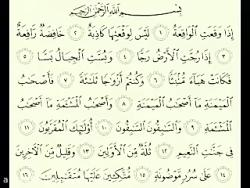 بِسْمِ ٱللَّهِ ٱلرَّحْمَٰنِ ٱلرَّحِيمِ
إِذَا وَقَعَتِ ٱلْوَاقِعَةُ ١ لَيْسَ لِوَقْعَتِهَا كَاذِبَةٌ ٢ خَافِضَةٌ رَّافِعَةٌ
٣ إِذَا رُجَّتِ ٱلْأَرْضُ رَجًّا ٤ وَبُسَّتِ ٱلْجِبَالُ بَسًّا ٥
فَكَانَتْ هَبَآءً مُّنۢبَثًّا ٦ وَكُنتُمْ أَزْوَٰجًا ثَلَٰثَةً ٧ فَأَصْحَٰبُ
ٱلْمَيْمَنَةِ مَآ أَصْحَٰبُ ٱلْمَيْمَنَةِ ٨ وَأَصْحَٰبُ ٱلْمَشْـَٔمَةِ مَآ أَصْحَٰبُ
ٱلْمَشْـَٔمَةِ ٩ وَٱلسَّٰبِقُونَ ٱلسَّٰبِقُونَ ١٠ أُو۟لَٰٓئِكَ ٱلْمُقَرَّبُونَ ١١
فِى جَنَّٰتِ ٱلنَّعِيمِ ١٢ ثُلَّةٌ مِّنَ ٱلْأَوَّلِينَ ١٣ وَقَلِيلٌ مِّنَ ٱلْـَٔاخِرِينَ
١٤ عَلَىٰ سُرُرٍ مَّوْضُونَةٍ ١٥ مُّتَّكِـِٔينَ عَلَيْهَا مُتَقَٰبِلِينَ ١٦
a